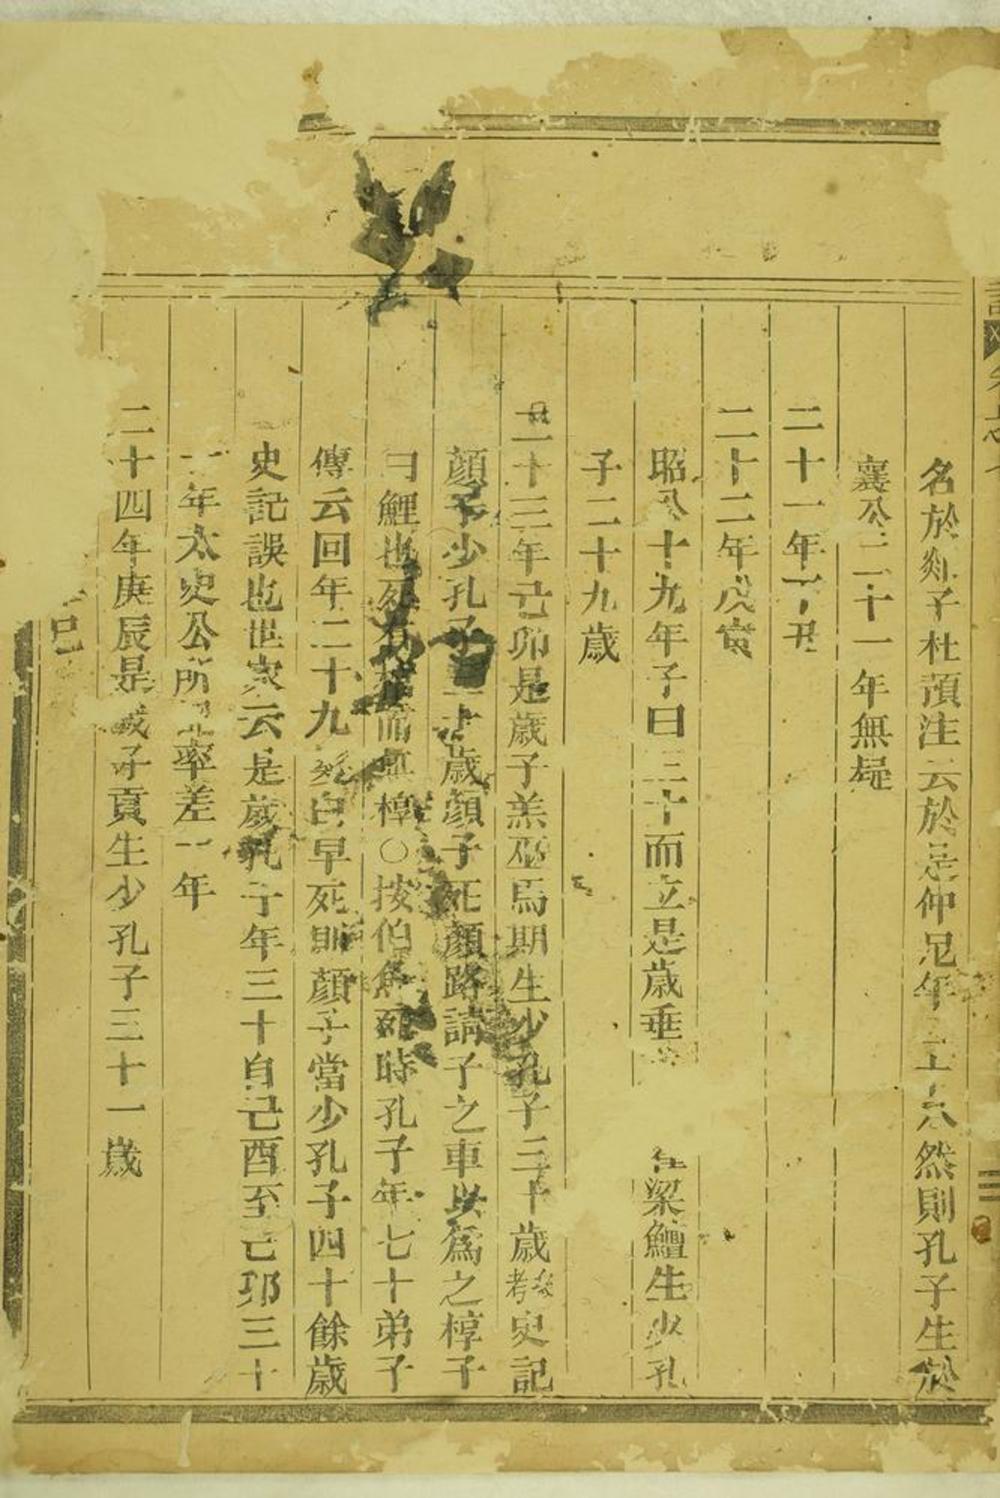 名於剡子杜預注云於是仲尼年二十六然則孔子生於
襄公二十一年無疑
二十一年丁丑
二十二年戊寅
昭公十九年子曰三十而立是歲垂 梁鱣生少孔
子二十九歲
二十三年己卯是歲子羔巫馬期生少孔子三十歲考史記
顏子少孔子三十歲顏子死顏路請子之車以爲之椁子
曰鯉也死有棺而無椁○按伯魚死時孔子年七十弟子
傳云回年二十九髮白早死則顏子當少孔子四十餘歲
史記誤也世家云是歲孔子年三十自己酉至己卯三十
一年太史公所 率差一年
二十四年庚辰是歲子貢生少孔子三十一歲